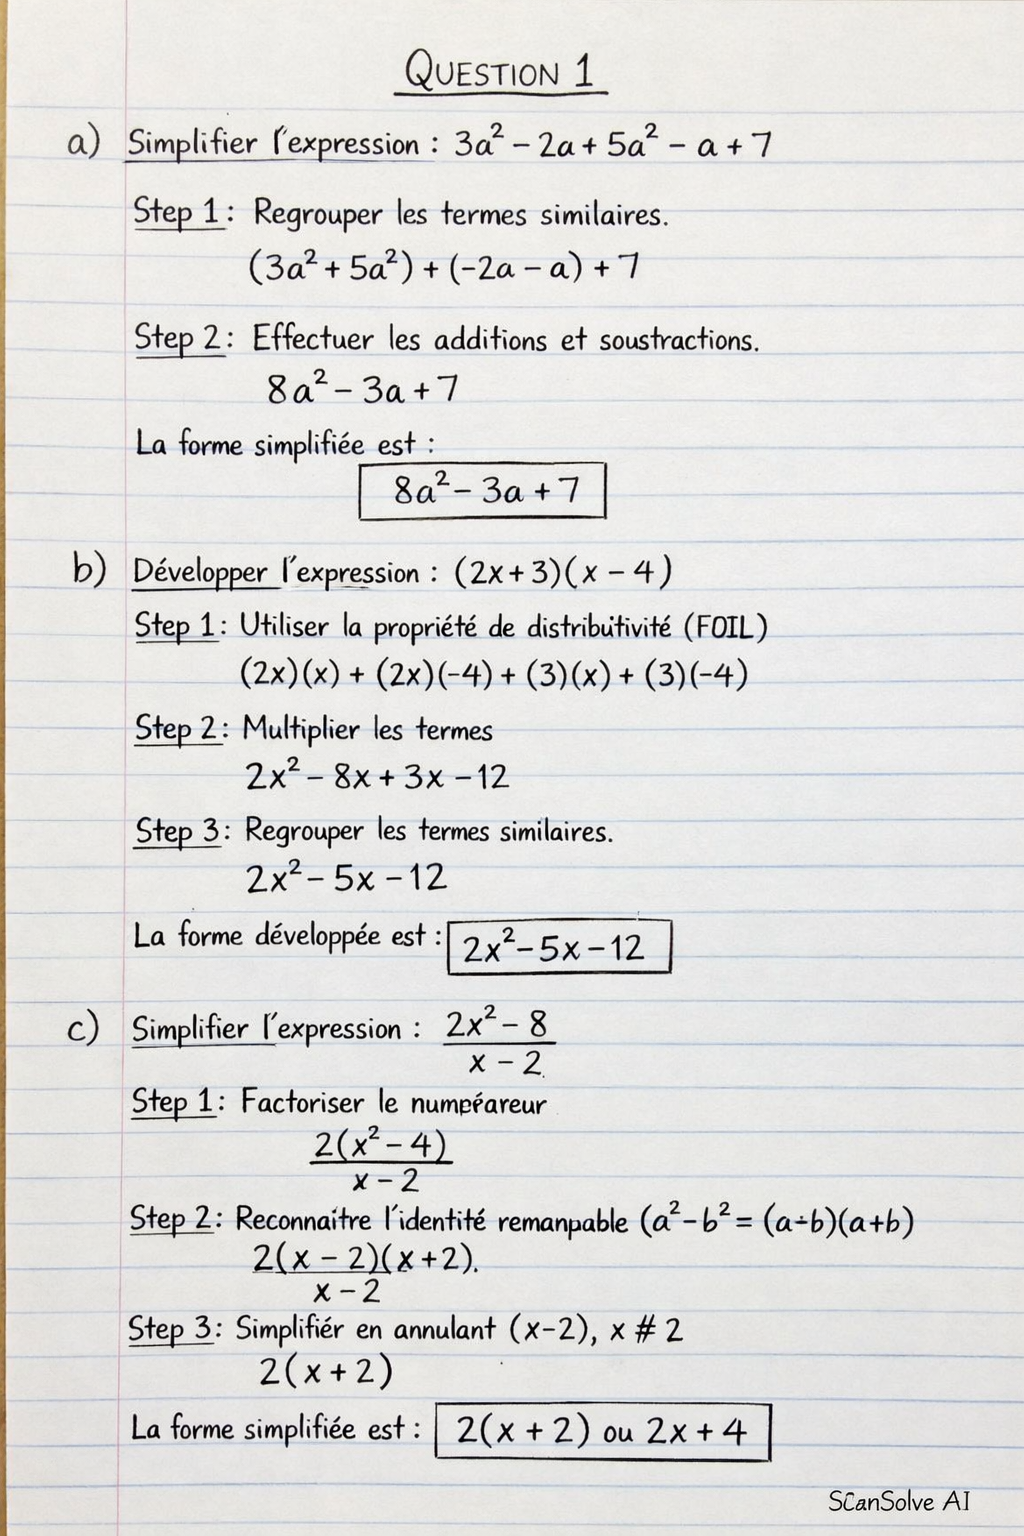 QUESTION 1
a) Simplifier l'expression : 3a² − 2a + 5a² − a + 7
Step 1: Regrouper les termes similaires.
(3a² + 5a²) + (−2a − a) + 7
Step 2: Effectuer les additions et soustractions.
8a² − 3a + 7
La forme simplifiée est :
8a² − 3a + 7
b) Développer l'expression : (2x + 3)(x − 4)
Step 1: Utiliser la propriété de distributivité (FOIL)
(2x)(x) + (2x)(−4) + (3)(x) + (3)(−4)
Step 2: Multiplier les termes
2x² − 8x + 3x − 12
Step 3: Regrouper les termes similaires.
2x² − 5x − 12
La forme développée est : 2x² − 5x − 12
c) Simplifier l'expression : 2x² − 8
x − 2
Step 1: Factoriser le numpéareur
2(x² − 4)
x − 2
Step 2: Reconnaître l'identité remanpable (a² − b² = (a÷b)(a+b)
2(x − 2)(x + 2).
x − 2
Step 3: Simplifiér en annulant (x−2), x # 2
2(x + 2)
La forme simplifiée est : 2(x + 2) ou 2x + 4
SCanSolve AI